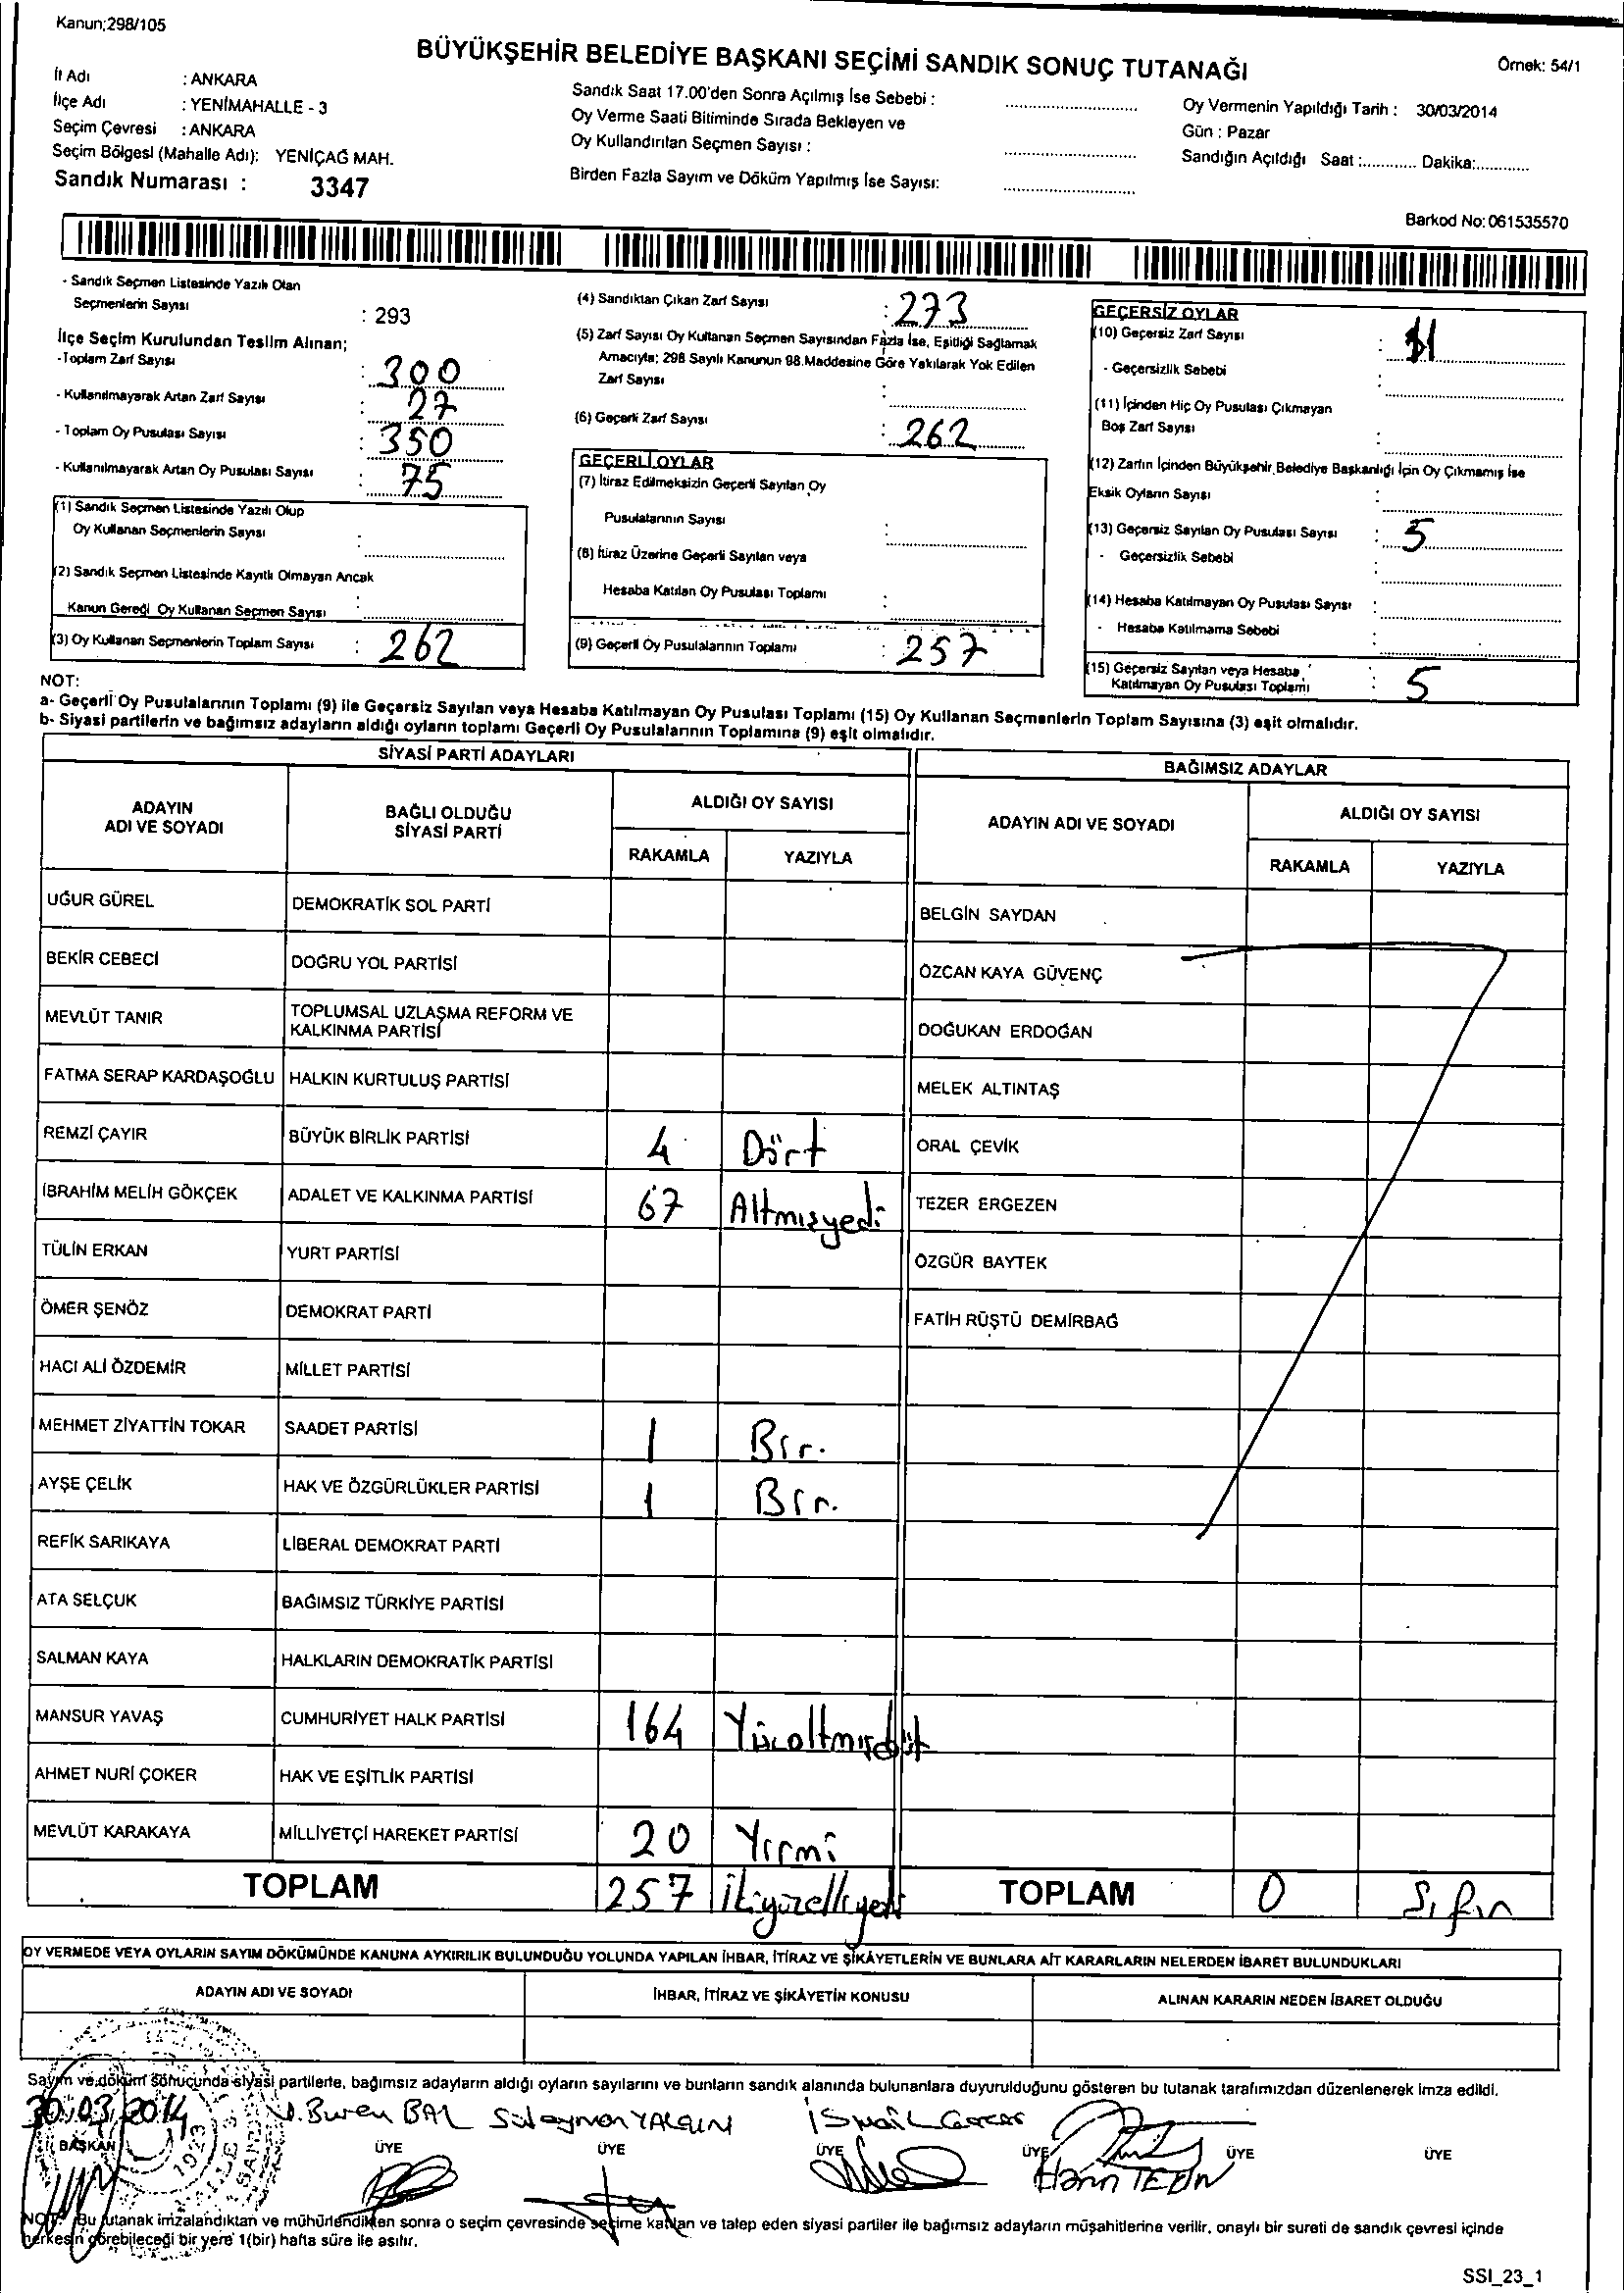 Kanun;298/105
BÜYÜKŞEHİR BELEDİYE BAŞKANI SEÇİMİ SANDIK SONUÇ TUTANAĞI
Örnek: 54/1
İl Adı : ANKARA
İlçe Adı : YENİMAHALLE - 3
Seçim Çevresi : ANKARA
Seçim Bölgesi (Mahalle Adı): YENİÇAĞ MAH.
Sandık Numarası : 3347
Sandık Saat 17.00'den Sonra Açılmış İse Sebebi :
Oy Verme Saati Bitiminde Sırada Bekleyen ve
Oy Kullandırılan Seçmen Sayısı :
Birden Fazla Sayım ve Döküm Yapılmış İse Sayısı:
Oy Vermenin Yapıldığı Tarih : 30/03/2014
Gün : Pazar
Sandığın Açıldığı Saat :............ Dakika:............
Barkod No: 061535570
- Sandık Seçmen Listesinde Yazılı Olan
Seçmenlerin Sayısı : 293
İlçe Seçim Kurulundan Teslim Alınan;
-Toplam Zarf Sayısı : 300
- Kullanılmayarak Artan Zarf Sayısı : 27
- Toplam Oy Pusulası Sayısı : 350
- Kullanılmayarak Artan Oy Pusulası Sayısı : 75
(1) Sandık Seçmen Listesinde Yazılı Olup
Oy Kullanan Seçmenlerin Sayısı :
(2) Sandık Seçmen Listesinde Kayıtlı Olmayan Ancak
Kanun Gereği Oy Kullanan Seçmen Sayısı :
(3) Oy Kullanan Seçmenlerin Toplam Sayısı : 262
(4) Sandıktan Çıkan Zarf Sayısı : 273
(5) Zarf Sayısı Oy Kullanan Seçmen Sayısından Fazla İse, Eşitliği Sağlamak
Amacıyla; 298 Sayılı Kanunun 98.Maddesine Göre Yakılarak Yok Edilen
Zarf Sayısı :
(6) Geçerli Zarf Sayısı : 262
GEÇERLİ OYLAR
(7) İtiraz Edilmeksizin Geçerli Sayılan Oy
Pusulalarının Sayısı :
(8) İtiraz Üzerine Geçerli Sayılan veya
Hesaba Katılan Oy Pusulası Toplamı :
(9) Geçerli Oy Pusulalarının Toplamı : 257
GEÇERSİZ OYLAR
(10) Geçersiz Zarf Sayısı : 11
- Geçersizlik Sebebi :
(11) İçinden Hiç Oy Pusulası Çıkmayan
Boş Zarf Sayısı :
(12) Zarfın İçinden Büyükşehir Belediye Başkanlığı İçin Oy Çıkmamış İse
Eksik Oyların Sayısı :
(13) Geçersiz Sayılan Oy Pusulası Sayısı : 5
- Geçersizlik Sebebi :
(14) Hesaba Katılmayan Oy Pusulası Sayısı :
- Hesaba Katılmama Sebebi :
(15) Geçersiz Sayılan veya Hesaba
Katılmayan Oy Pusulası Toplamı : 5
NOT:
a- Geçerli Oy Pusulalarının Toplamı (9) ile Geçersiz Sayılan veya Hesaba Katılmayan Oy Pusulası Toplamı (15) Oy Kullanan Seçmenlerin Toplam Sayısına (3) eşit olmalıdır.
b- Siyasi partilerin ve bağımsız adayların aldığı oyların toplamı Geçerli Oy Pusulalarının Toplamına (9) eşit olmalıdır.
SİYASİ PARTİ ADAYLARI
BAĞIMSIZ ADAYLAR
ADAYIN ADI VE SOYADI
BAĞLI OLDUĞU SİYASİ PARTİ
ALDIĞI OY SAYISI
RAKAMLA YAZIYLA
ADAYIN ADI VE SOYADI
ALDIĞI OY SAYISI
RAKAMLA YAZIYLA
UĞUR GÜREL DEMOKRATİK SOL PARTİ BELGİN SAYDAN
BEKİR CEBECİ DOĞRU YOL PARTİSİ ÖZCAN KAYA GÜVENÇ
MEVLÜT TANIR TOPLUMSAL UZLAŞMA REFORM VE KALKINMA PARTİSİ DOĞUKAN ERDOĞAN
FATMA SERAP KARDAŞOĞLU HALKIN KURTULUŞ PARTİSİ MELEK ALTINTAŞ
REMZİ ÇAYIR BÜYÜK BİRLİK PARTİSİ 4 Dört ORAL ÇEVİK
İBRAHİM MELİH GÖKÇEK ADALET VE KALKINMA PARTİSİ 67 Altmışyedi TEZER ERGEZEN
TÜLİN ERKAN YURT PARTİSİ ÖZGÜR BAYTEK
ÖMER ŞENÖZ DEMOKRAT PARTİ FATİH RÜŞTÜ DEMİRBAĞ
HACI ALİ ÖZDEMİR MİLLET PARTİSİ
MEHMET ZİYATTİN TOKAR SAADET PARTİSİ 1 Bir.
AYŞE ÇELİK HAK VE ÖZGÜRLÜKLER PARTİSİ 1 Bir.
REFİK SARIKAYA LİBERAL DEMOKRAT PARTİ
ATA SELÇUK BAĞIMSIZ TÜRKİYE PARTİSİ
SALMAN KAYA HALKLARIN DEMOKRATİK PARTİSİ
MANSUR YAVAŞ CUMHURİYET HALK PARTİSİ 164 Yüzaltmışdört
AHMET NURİ ÇOKER HAK VE EŞİTLİK PARTİSİ
MEVLÜT KARAKAYA MİLLİYETÇİ HAREKET PARTİSİ 20 Yirmi
TOPLAM 257 ikiyüzelliyedi TOPLAM 0 Sıfır
OY VERMEDE VEYA OYLARIN SAYIM DÖKÜMÜNDE KANUNA AYKIRILIK BULUNDUĞU YOLUNDA YAPILAN İHBAR, İTİRAZ VE ŞİKÂYETLERİN VE BUNLARA AİT KARARLARIN NELERDEN İBARET BULUNDUKLARI
ADAYIN ADI VE SOYADI İHBAR, İTİRAZ VE ŞİKÂYETİN KONUSU ALINAN KARARIN NEDEN İBARET OLDUĞU
Sayım ve döküm sonucunda siyasi partilerle, bağımsız adayların aldığı oyların sayılarını ve bunların sandık alanında bulunanlara duyurulduğunu gösteren bu tutanak tarafımızdan düzenlenerek imza edildi.
30.03.2014 Buren BAL Süleyman YALÇIN İSMAİL
BAŞKAN ÜYE ÜYE ÜYE ÜYE ÜYE ÜYE
1923
NOT: Bu tutanak imzalandıktan ve mühürlendikten sonra o seçim çevresinde seçime katılan ve talep eden siyasi partiler ile bağımsız adayların müşahitlerine verilir, onaylı bir sureti de sandık çevresi içinde
herkesin görebileceği bir yere 1(bir) hafta süre ile asılır.
SSI_23_1